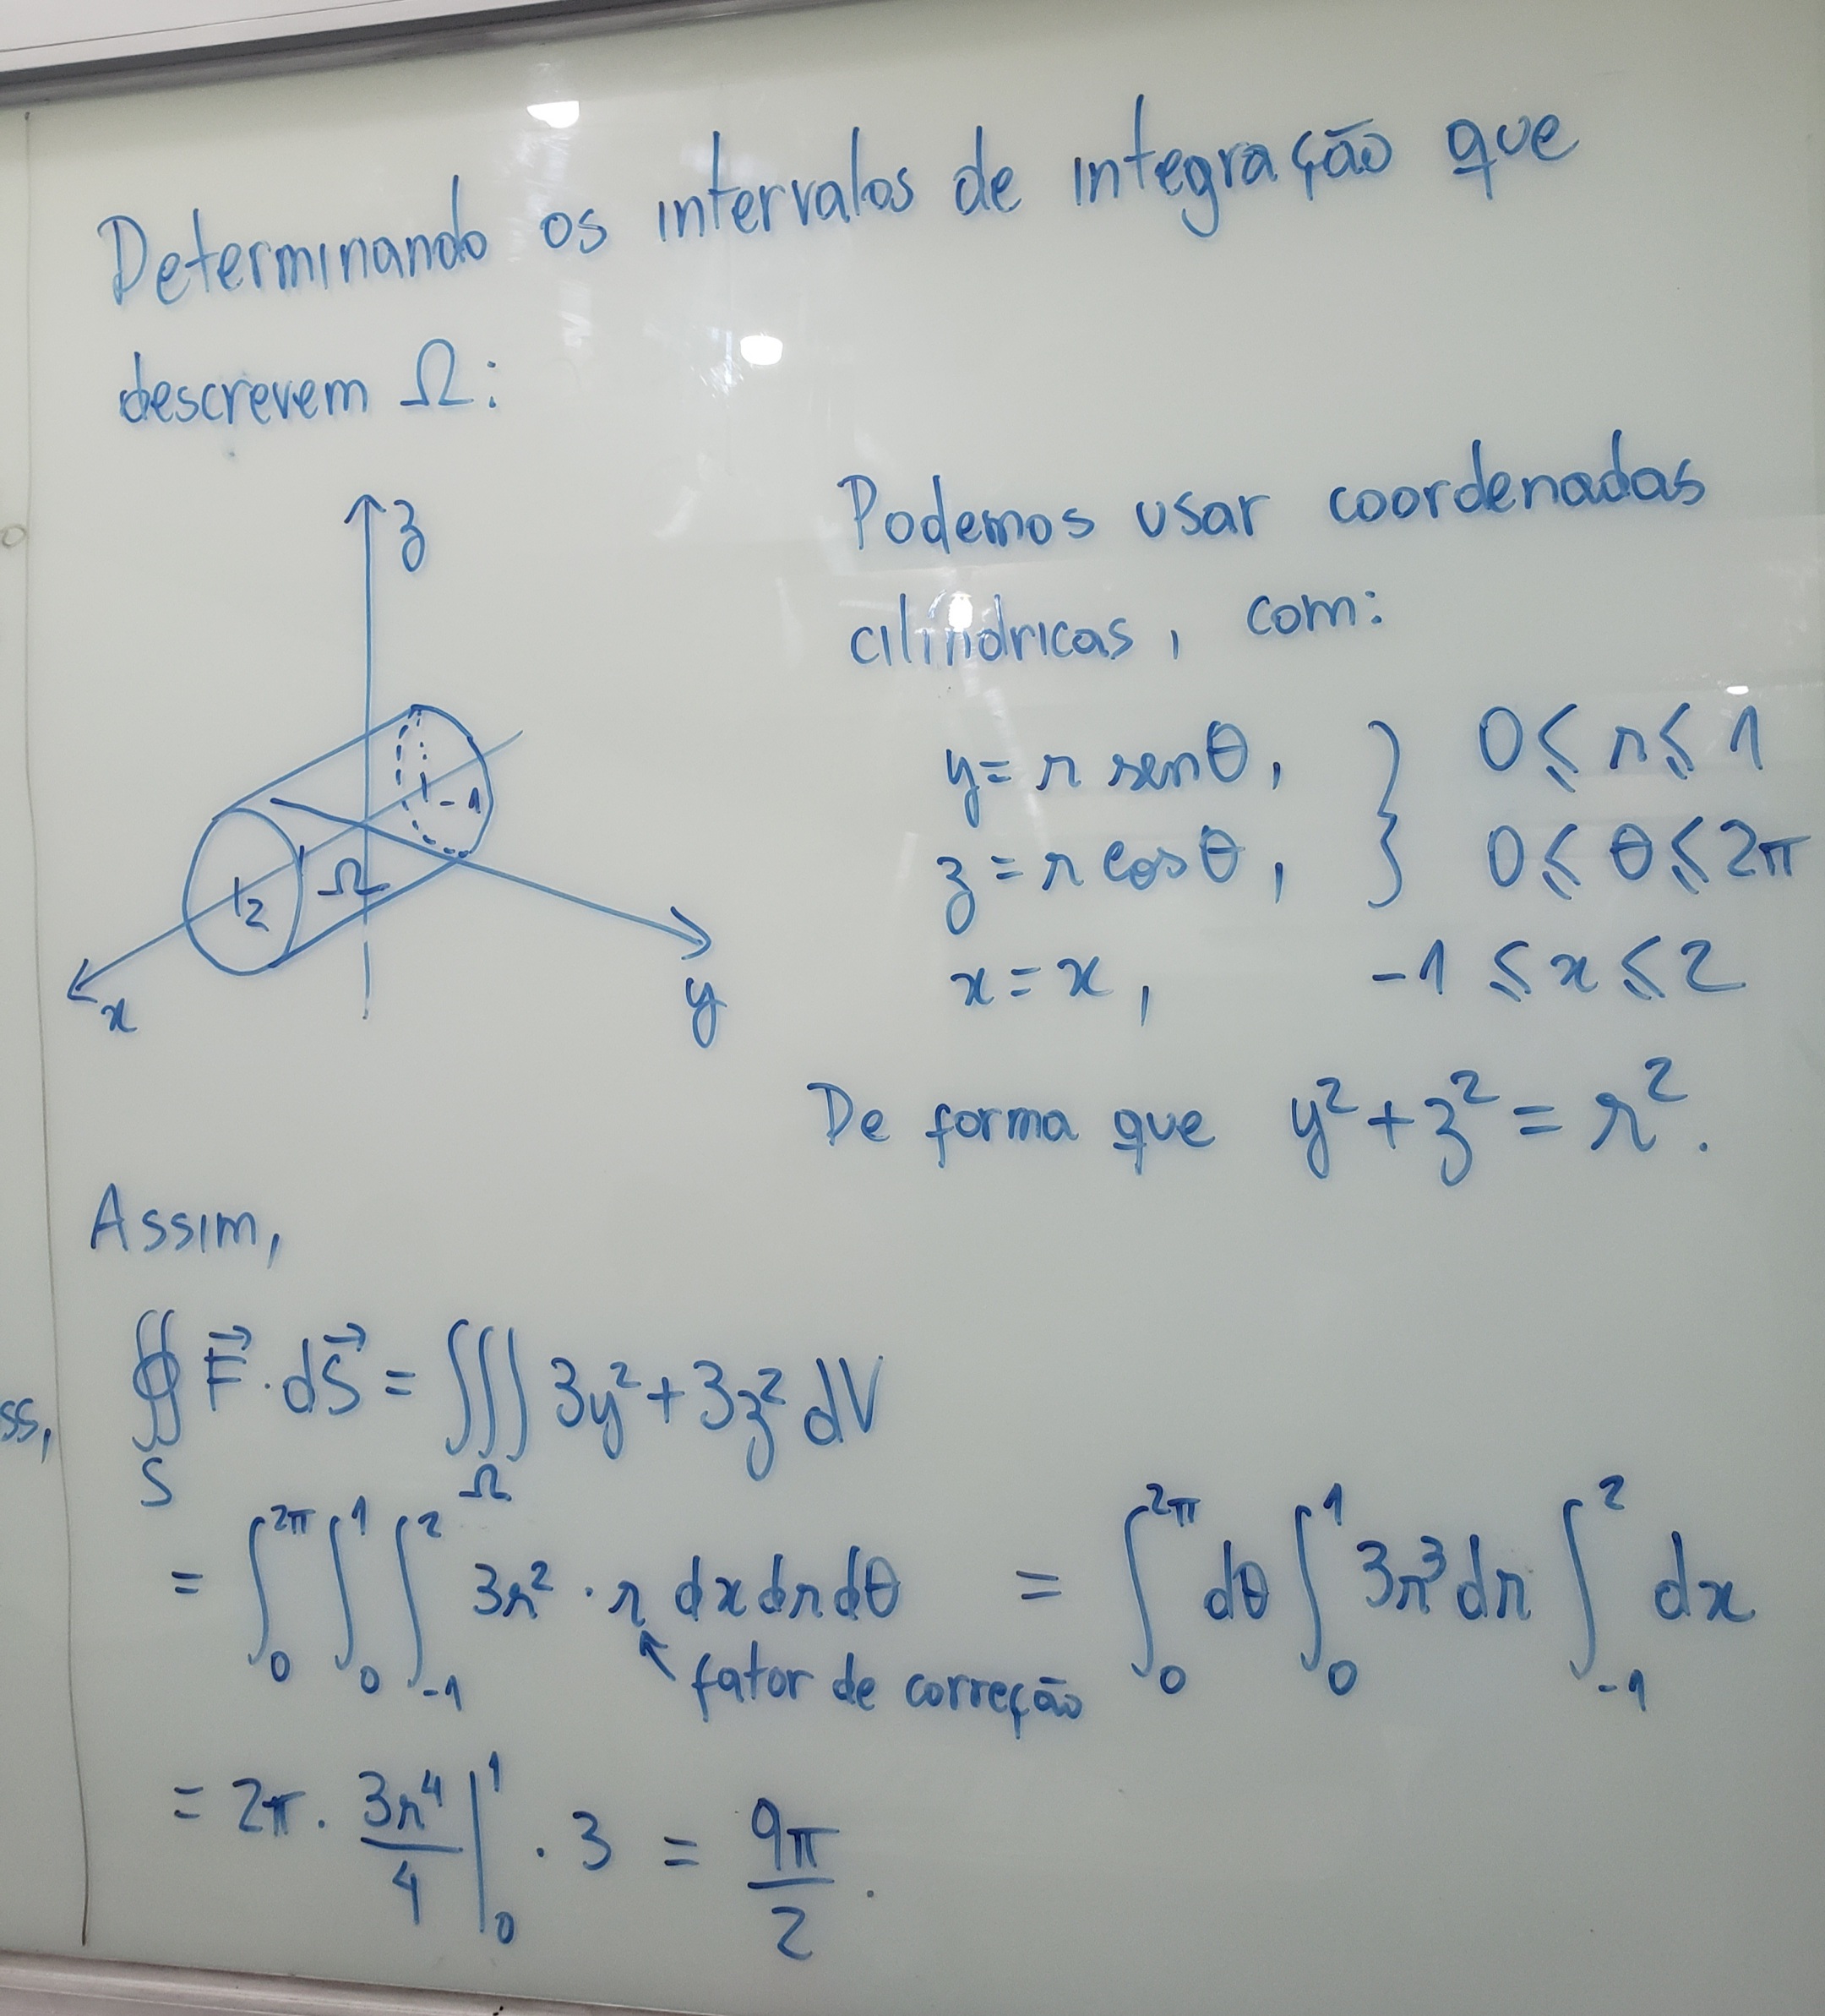 Determinando os intervalos de integração que
descrevem Ω:
z
-1
Ω
2
x
y
Podemos usar coordenadas
cilíndricas, com:
y = r senθ, } 0 ≤ r ≤ 1
z = r cosθ, 0 ≤ θ ≤ 2π
x = x, -1 ≤ x ≤ 2
De forma que y² + z² = r².
Assim,
ss,
∯_S F⃗·dS⃗ = ∭_Ω 3y² + 3z² dV
= ∫_0^{2π} ∫_0^1 ∫_{-1}^2 3r² · r dx dr dθ = ∫_0^{2π} dθ ∫_0^1 3r³ dr ∫_{-1}^2 dx
↖ fator de correção
= 2π · 3r⁴/4 |_0^1 · 3 = 9π/2.